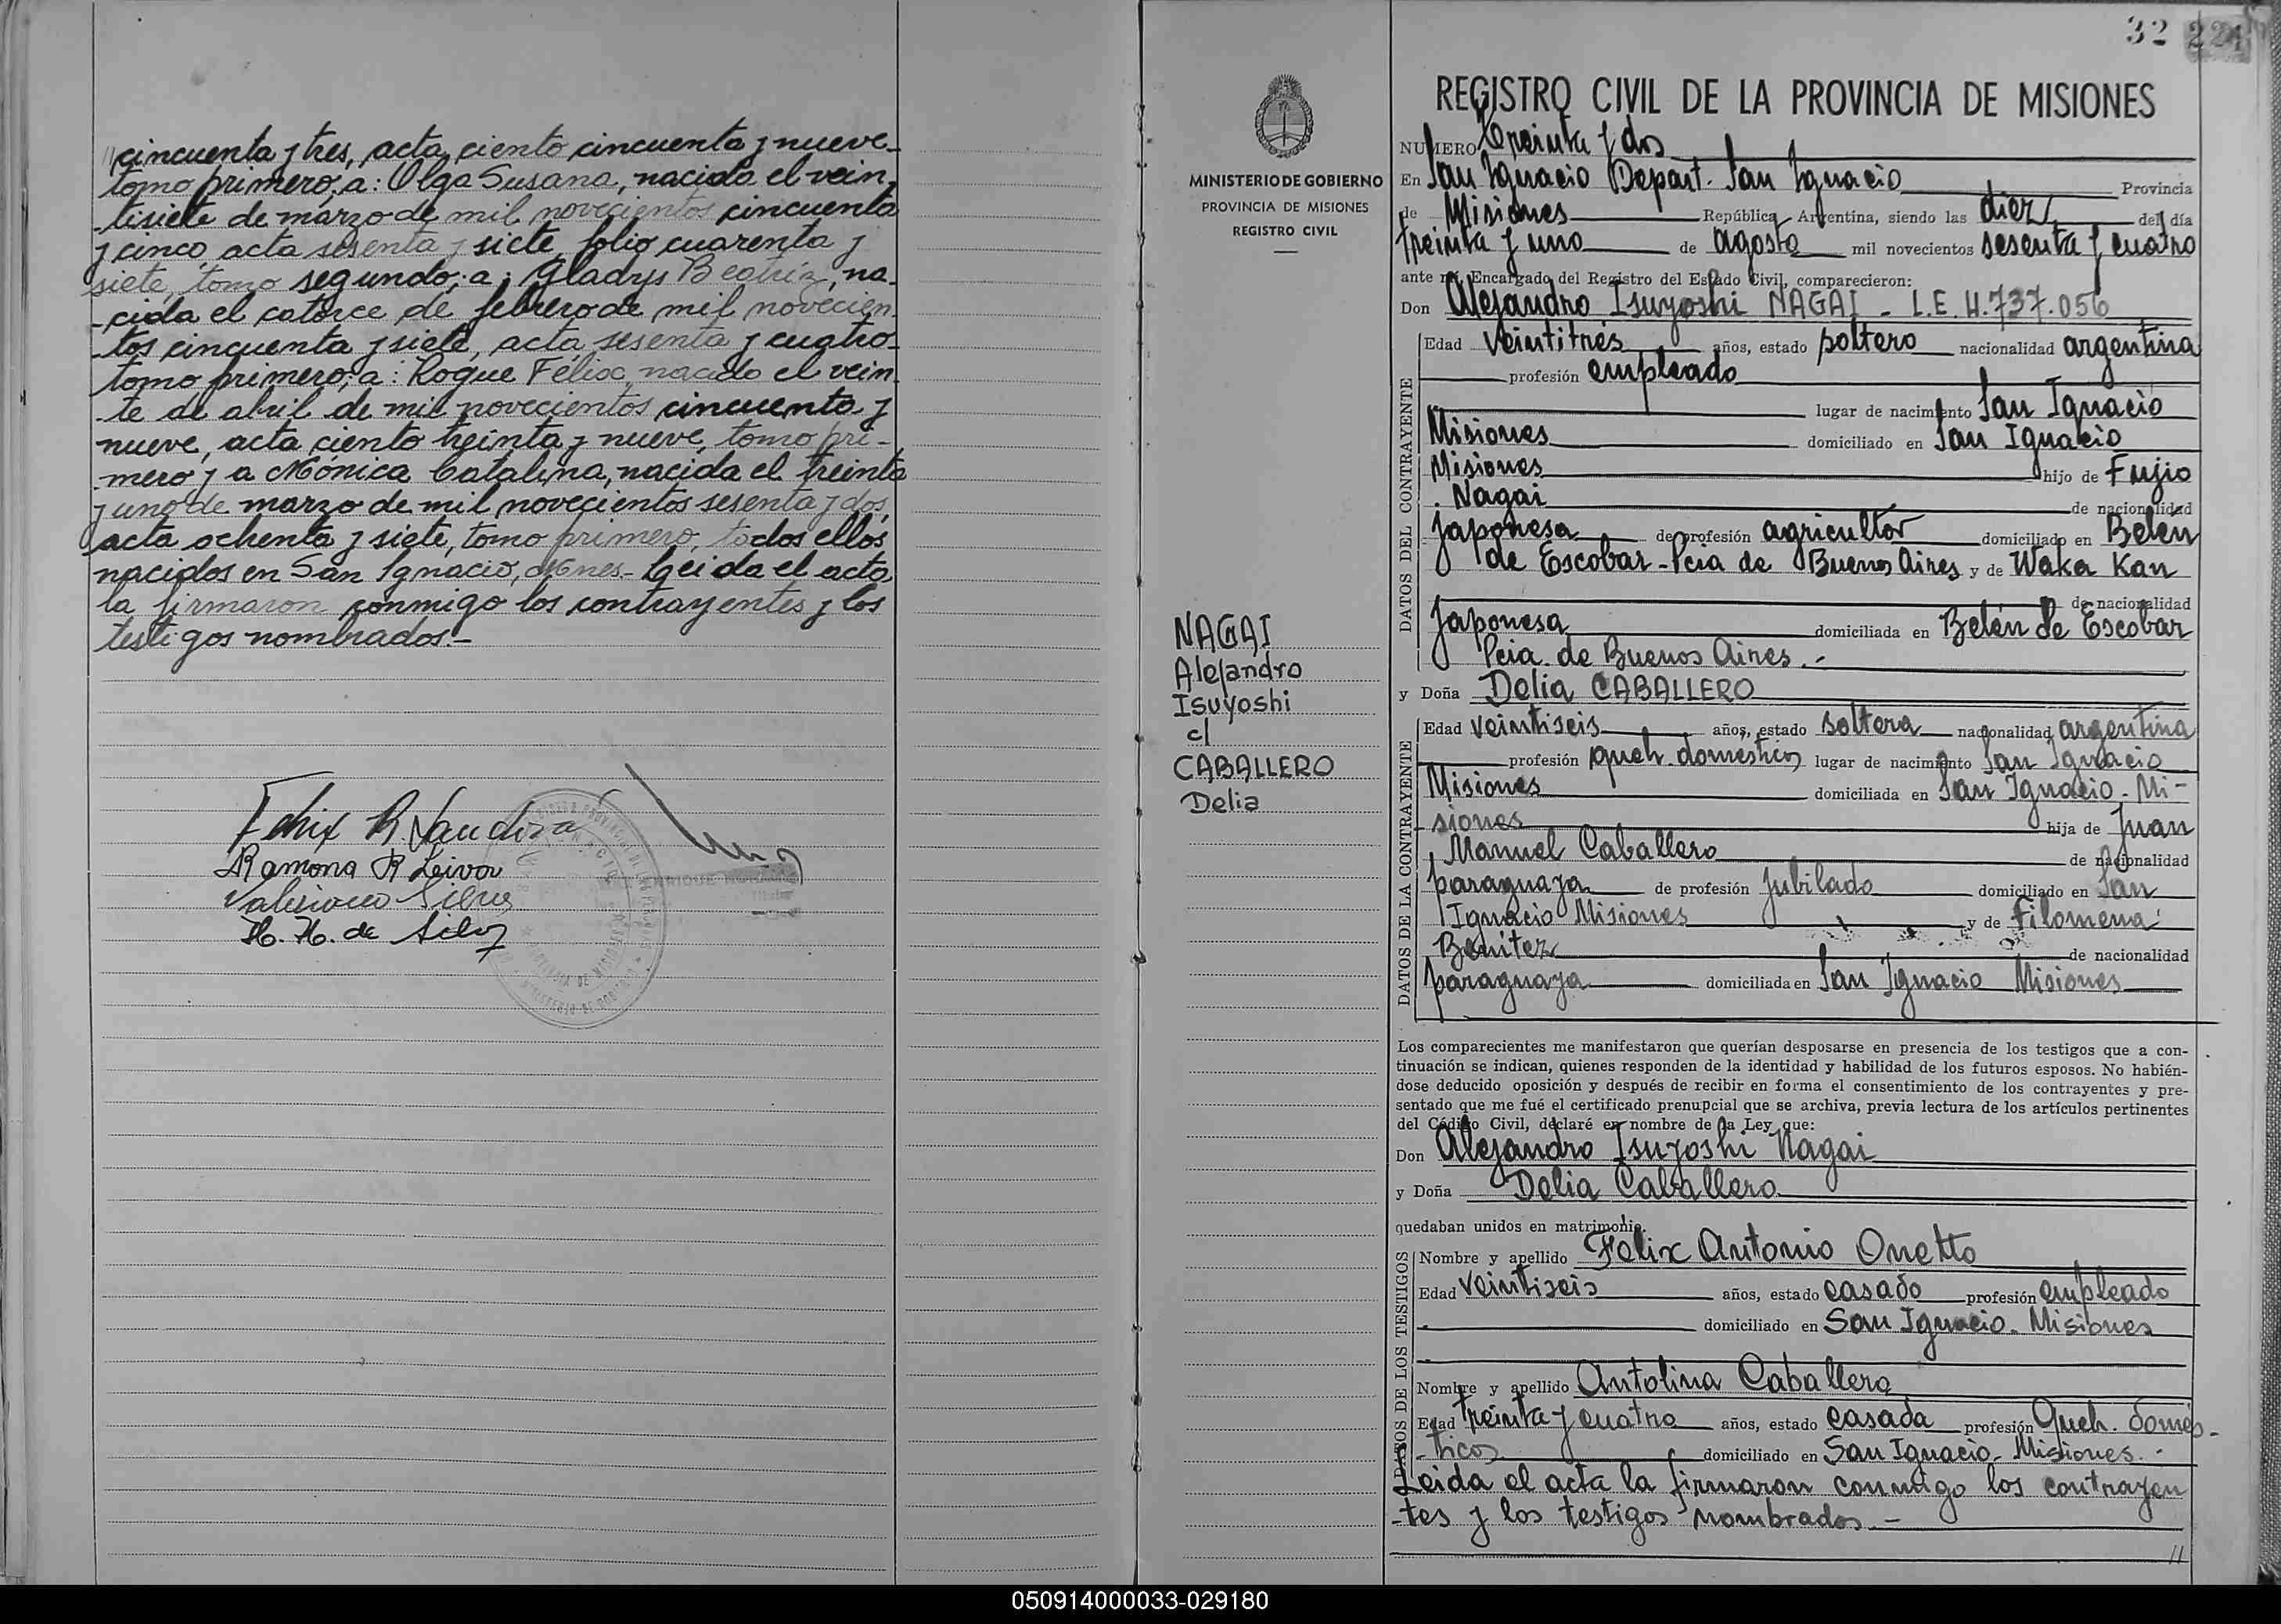 cincuenta y tres, acta ciento cincuenta y nueve
tomo primero; a: Olga Susana, nacida el vein-
tisiete de marzo de mil novecientos cincuenta
y cinco, acta sesenta y siete, folio cuarenta y
siete, tomo segundo; a: Gladys Beatriz, na-
cida el catorce de febrero de mil novecien-
tos cincuenta y siete, acta sesenta y cuatro
tomo primero; a: Roque Félix, nacido el vein-
te de abril de mil novecientos cincuenta y
nueve, acta ciento treinta y nueve, tomo pri-
mero y a Mónica Catalina, nacida el treinta
y uno de marzo de mil novecientos sesenta y dos,
acta ochenta y siete, tomo primero, todos ellos
nacidos en San Ignacio, Leida el acta
la firmaron conmigo los contrayentes y los
testigos nombrados.-
Ramona R Leiva
H. H. de Silva
32
REGISTRO CIVIL DE LA PROVINCIA DE MISIONES
MINISTERIO DE GOBIERNO
PROVINCIA DE MISIONES
REGISTRO CIVIL
NAGAI
Alejandro
Isuyoshi
c/
CABALLERO
Delia
NUMERO Treinta y dos
En San Ignacio Depart. San Ignacio Provincia
de Misiones República Argentina, siendo las diez del día
treinta y uno de agosto mil novecientos sesenta y cuatro
ante mí, Encargado del Registro del Estado Civil, comparecieron:
Don Alejandro Isuyoshi NAGAI - L.E. 4.737.056
DATOS DEL CONTRAYENTE
Edad veintitrés años, estado soltero nacionalidad argentina
profesión empleado
lugar de nacimiento San Ignacio
Misiones domiciliado en San Ignacio
Misiones hijo de Fujio
Nagai de nacionalidad
japonesa de profesión agricultor domiciliado en Belén
de Escobar - Pcia de Buenos Aires y de Waka Kan
de nacionalidad
japonesa domiciliada en Belén de Escobar
Pcia. de Buenos Aires.-
y Doña Delia CABALLERO
DATOS DE LA CONTRAYENTE
Edad veintiseis años, estado soltera nacionalidad argentina
profesión queh. domésticos lugar de nacimiento San Ignacio
Misiones domiciliada en San Ignacio - Mi-
siones hija de Juan
Manuel Caballero de nacionalidad
paraguaya de profesión jubilado domiciliado en San
Ignacio Misiones y de Filomena
Benitez de nacionalidad
paraguaya domiciliada en San Ignacio Misiones
Los comparecientes me manifestaron que querían desposarse en presencia de los testigos que a con-
tinuación se indican, quienes responden de la identidad y habilidad de los futuros esposos. No habién-
dose deducido oposición y después de recibir en forma el consentimiento de los contrayentes y pre-
sentado que me fué el certificado prenupcial que se archiva, previa lectura de los artículos pertinentes
del Código Civil, declaré en nombre de la Ley que:
Don Alejandro Isuyoshi Nagai
y Doña Delia Caballero
quedaban unidos en matrimonio.
DATOS DE LOS TESTIGOS
Nombre y apellido Felix Antonio Onetto
Edad veintiseis años, estado casado profesión empleado
domiciliado en San Ignacio - Misiones
Nombre y apellido Antolina Caballero
Edad treinta y cuatro años, estado casada profesión Queh. domés-
ticos domiciliado en San Ignacio - Misiones.-
Leida el acta la firmaron conmigo los contrayen
-tes y los testigos nombrados.-
//
050914000033-029180